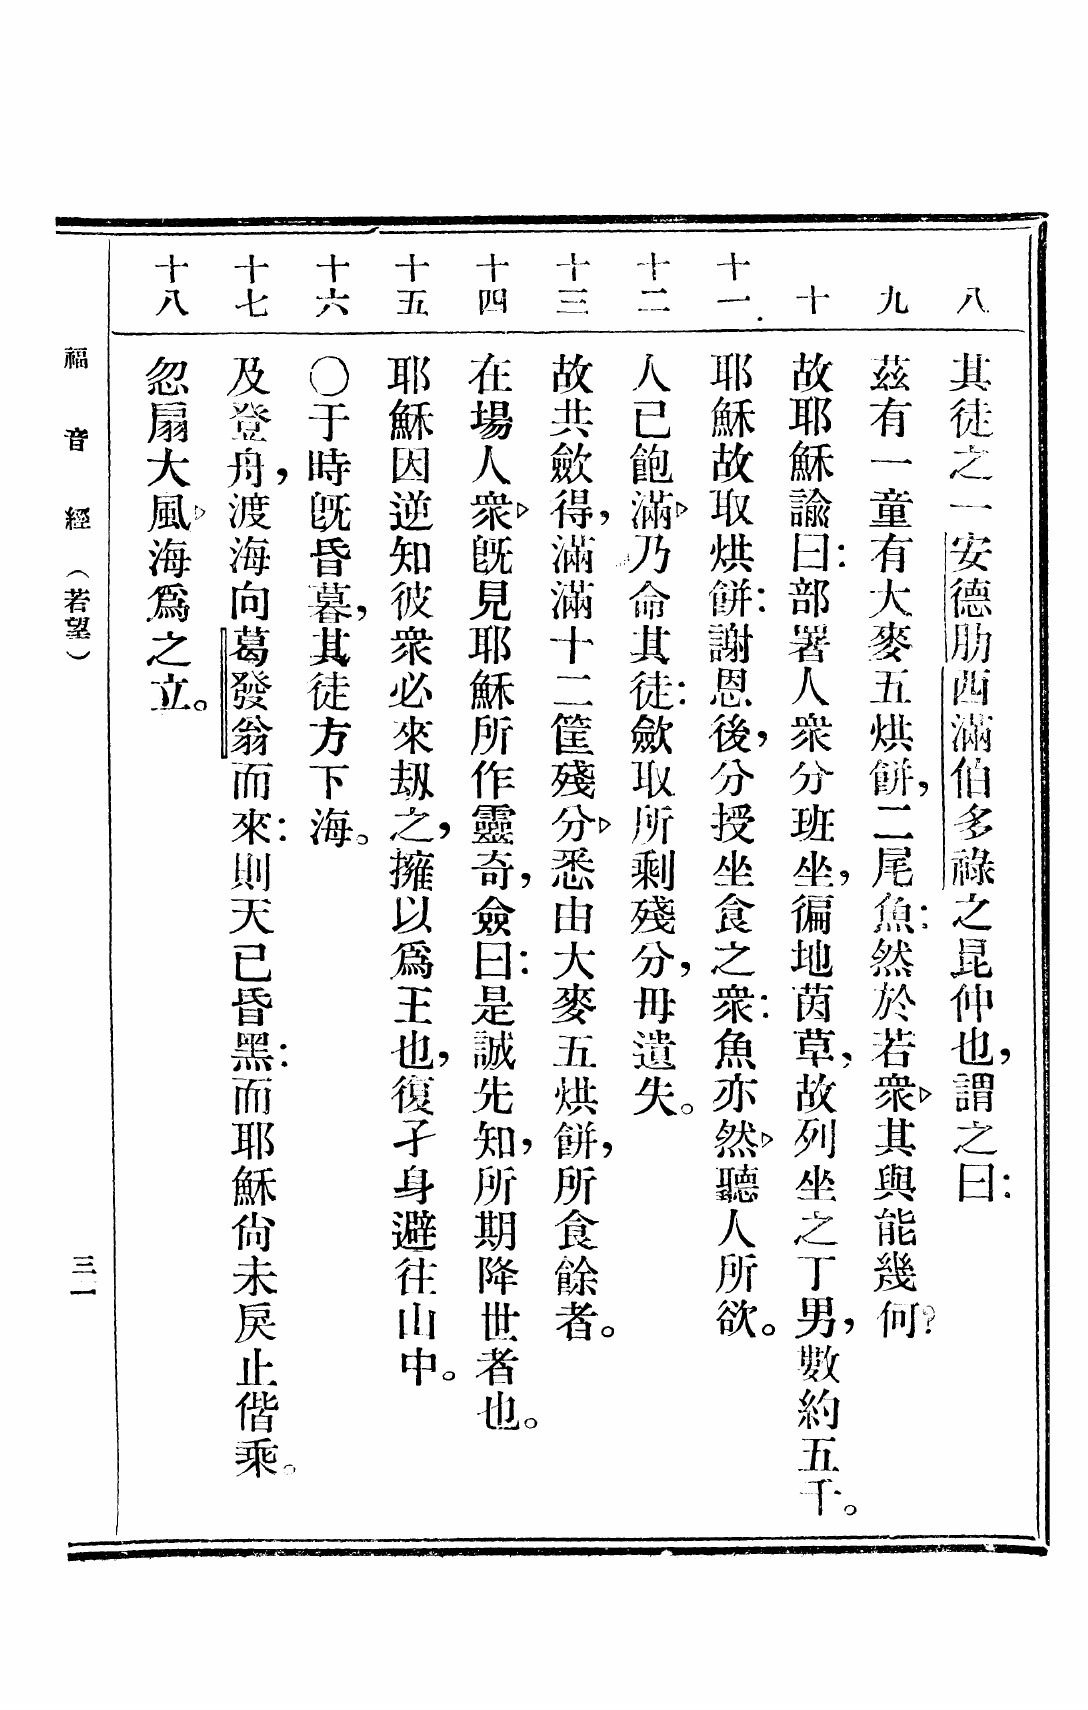 八 其徒之一安德肋西滿伯多祿之昆仲也，謂之曰：
九 茲有一童有大麥五烘餅，二尾魚：然於若衆▷其與能幾何？
十 故耶穌諭曰：部署人衆分班坐，徧地茵草，故列坐之丁男，數約五千。
十一 耶穌故取烘餅：謝恩後，分授坐食之衆：魚亦然▷聽人所欲。
十二 人已飽滿▷乃命其徒：歛取所剩殘分，毋遺失。
十三 故共歛得，滿滿十二筐殘分▷悉由大麥五烘餅，所食餘者。
十四 在場人衆▷旣見耶穌所作靈奇，僉曰：是誠先知，所期降世者也。
十五 耶穌因逆知彼衆必來刼之，擁以爲王也，復孑身避往山中。
十六 〇于時旣昏暮，其徒方下海。
十七 及登舟，渡海向葛發翁而來：則天已昏黑：而耶穌尙未戾止偕乘。
十八 忽扇大風▷海爲之立。
福音經（若望）
三一